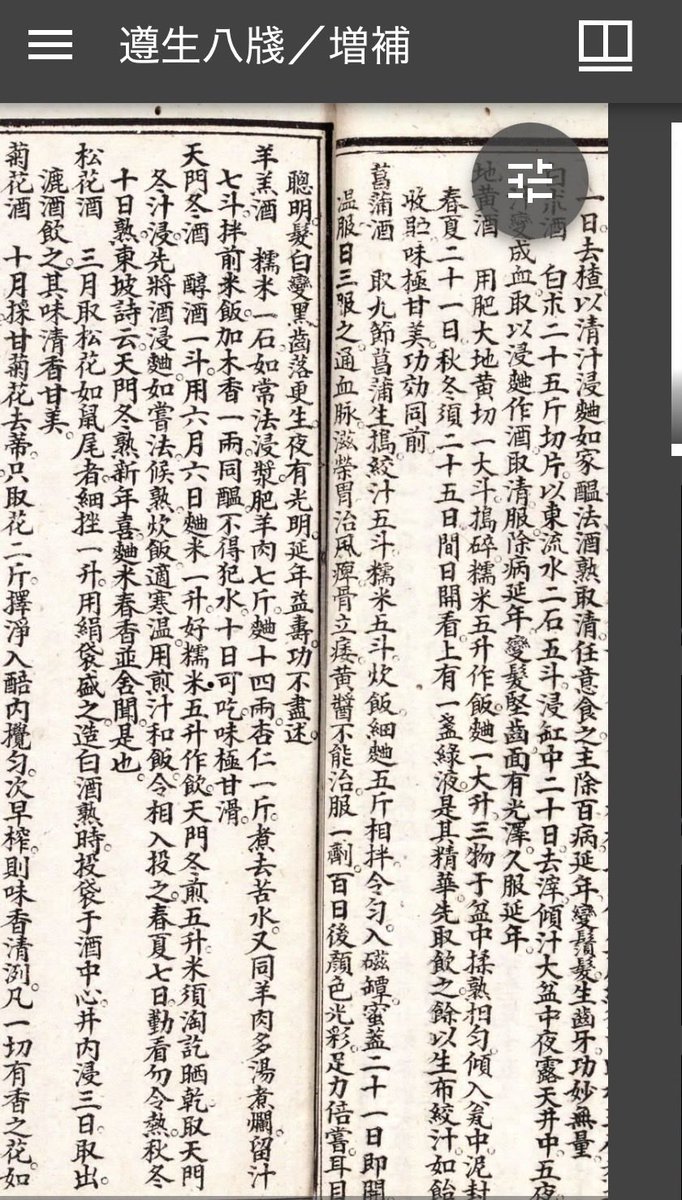 遵生八牋／増補
一日去楂以清汁浸麯如家醞法酒熟取清任意食之主除百病延年變鬚髮生齒牙功妙無量
白朮酒　白朮二十五斤切片以東流水二石五斗浸缸中二十日去滓傾汁大盆中夜露天井中五夜
變成血取以浸麯作酒取清服除病延年變髮堅齒面有光澤久服延年
地黃酒　用肥大地黃切一大斗搗碎糯米五升作飯麯一大升三物于盆中揉熟相勻傾入瓮中泥封
春夏二十一日秋冬須二十五日間日開看上有一盞綠液是其精華先取飲之餘以生布絞汁如飴
收貯味極甘美功効同前
菖蒲酒　取九節菖蒲生搗絞汁五斗糯米五斗炊飯細麯五斤相拌令勻入磁罈蜜蓋二十一日即開
温服日三服之通血脉滋榮胃治風痺骨立痿黃醫不能治服一劑百日後顏色光彩足力倍嘗耳目
聰明髮白變黑齒落更生夜有光明延年益壽功不盡述
羊羔酒　糯米一石如常法浸漿肥羊肉七斤麯十四兩杏仁一斤煮去苦水又同羊肉多湯煮爛留汁
七斗拌前米飯加木香一兩同醞不得犯水十日可吃味極甘滑
天門冬酒　醇酒一斗用六月六日麯米一升好糯米五升作飲天門冬煎五升米須淘訖晒乾取天門
冬汁浸先將酒浸麯如嘗法候熟炊飯適寒温用煎汁和飯令相入投之春夏七日勤看勿令熱秋冬
十日熟東坡詩云天門冬熟新年喜麯米春香並舍聞是也
松花酒　三月取松花如鼠尾者細挫一升用絹袋盛之造白酒熟時投袋于酒中心井内浸三日取出
漉酒飲之其味清香甘美
菊花酒　十月採甘菊花去蒂只取花二斤擇淨入醅内攪勻次早榨則味香清洌凡一切有香之花如